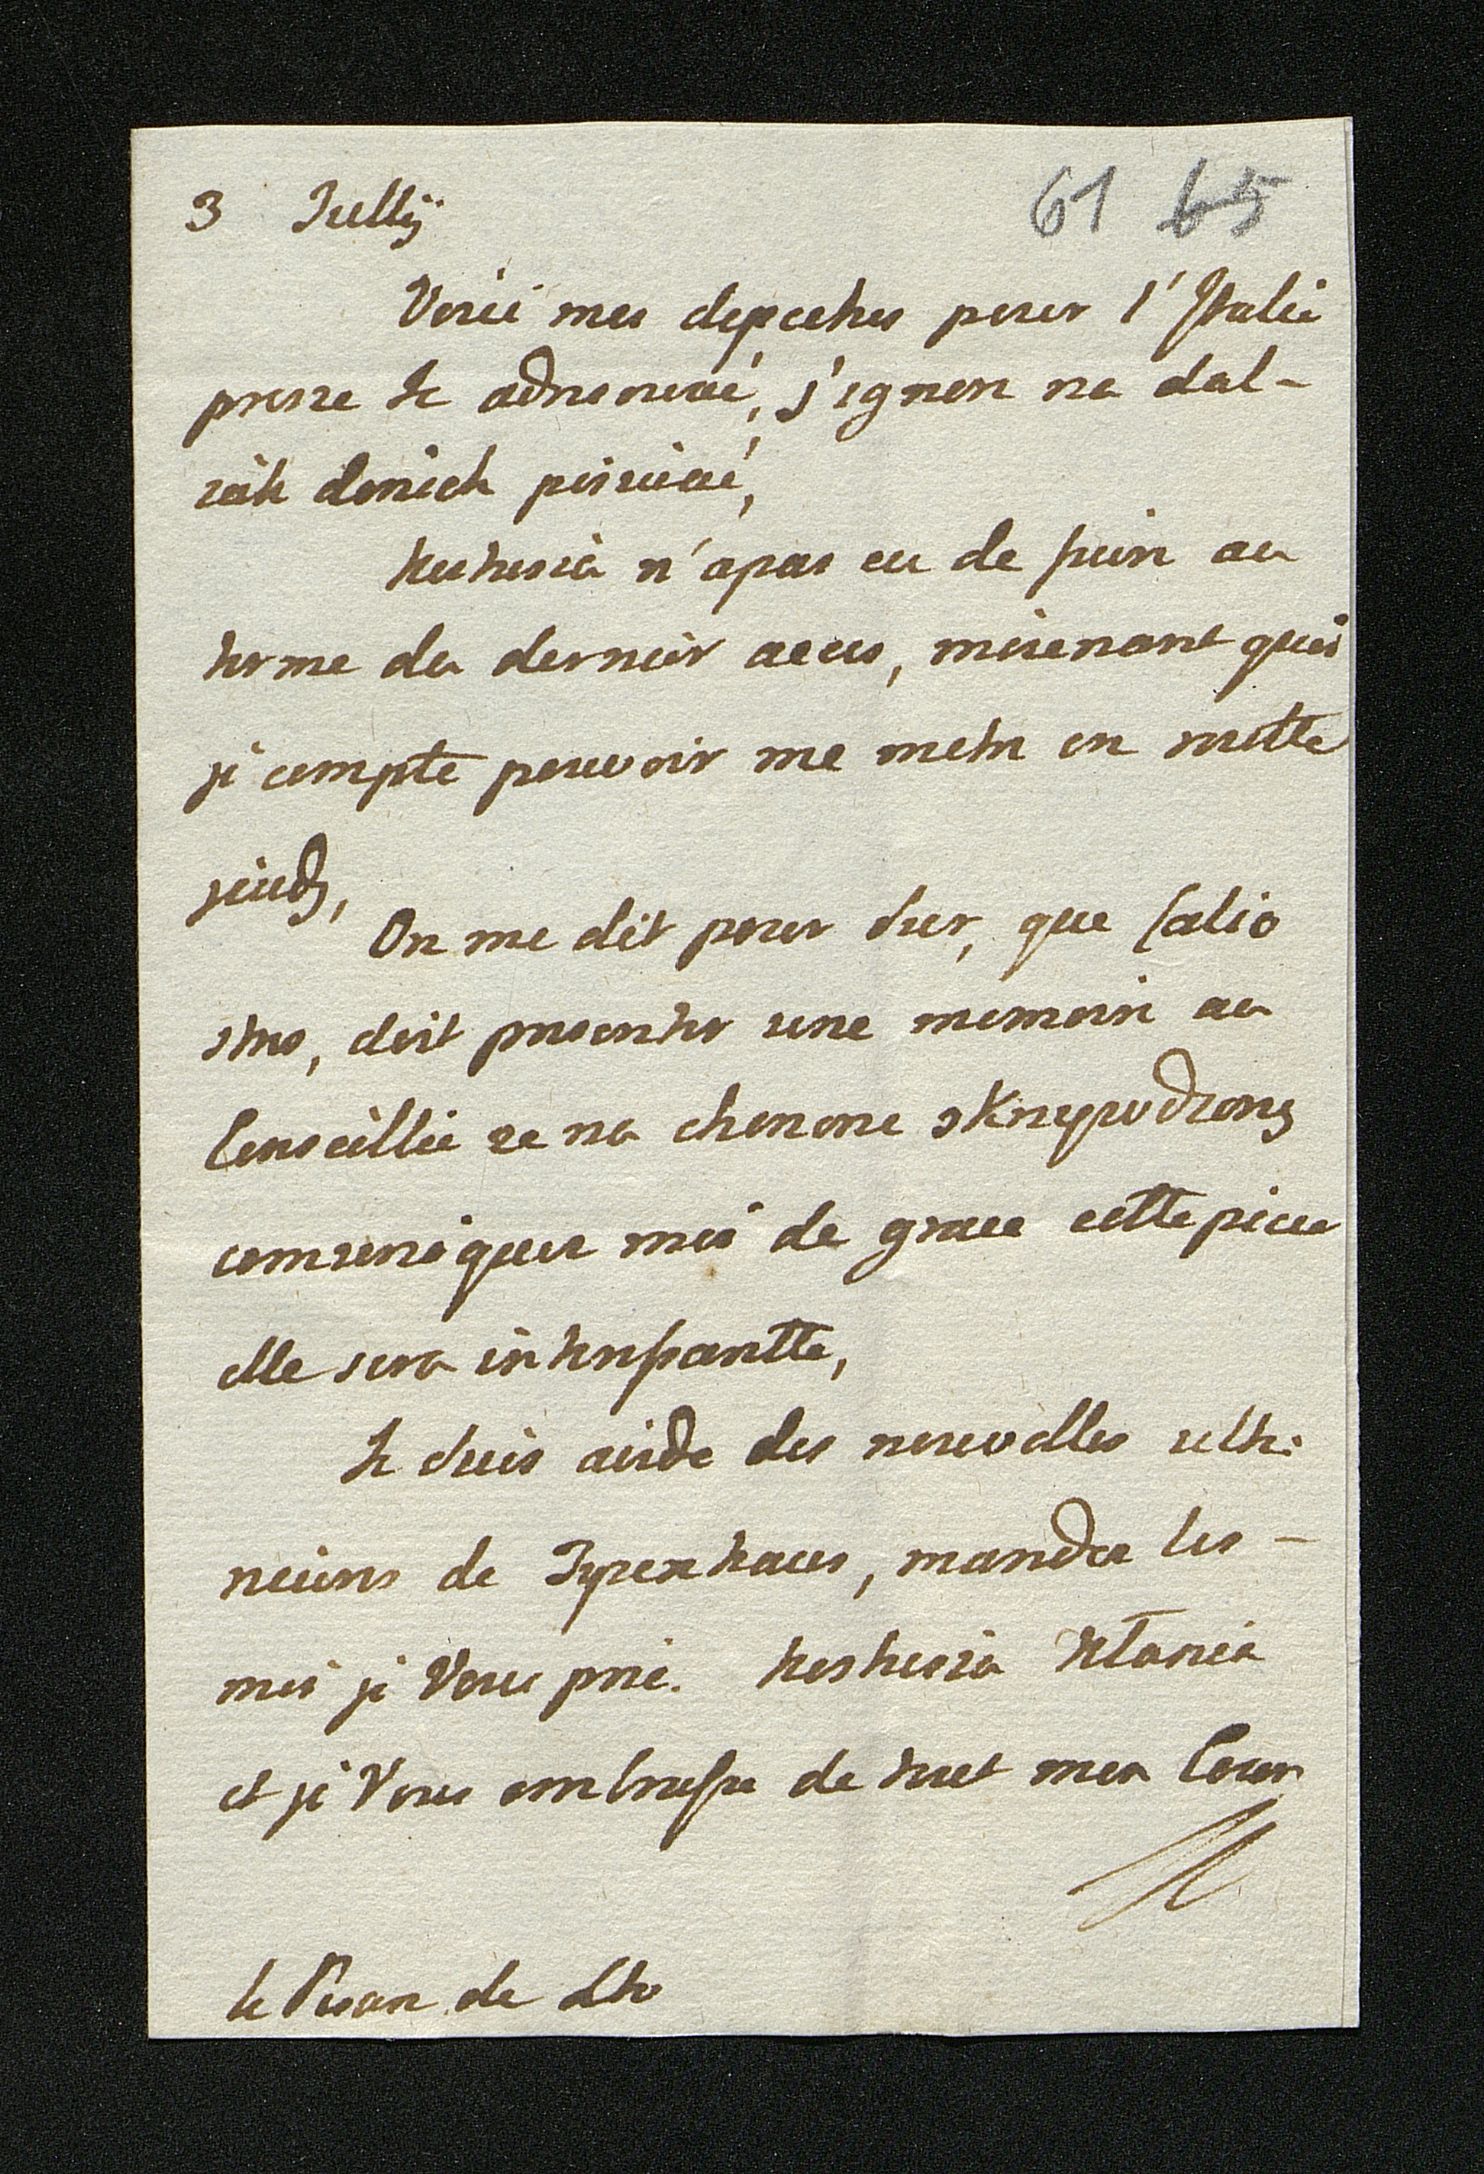 3 Jullij 61 65
Voici mes depeches pour l'Italie
prosze te adresowaé, j'ignore na dal-
szüe donich pisuiaé,
n'apas eu de fievre au
terme du dernier acces, moienant quoi
je compte pouvoir me metre en routte
jeudy,
On me dit pour sur, que Calio
stro, doit presenter une memoire au
Conseillie ze na chonone skrzywdzony
comuniquez moi de grace cette piece
elle sera interessantte,
Je suis avide des nouvelles ulte-
rieures de Tyzenhaus, mandez les-
moi je Vous prie.
et je Vous embrasse de tout mon Coeur
le Pisan de Lto